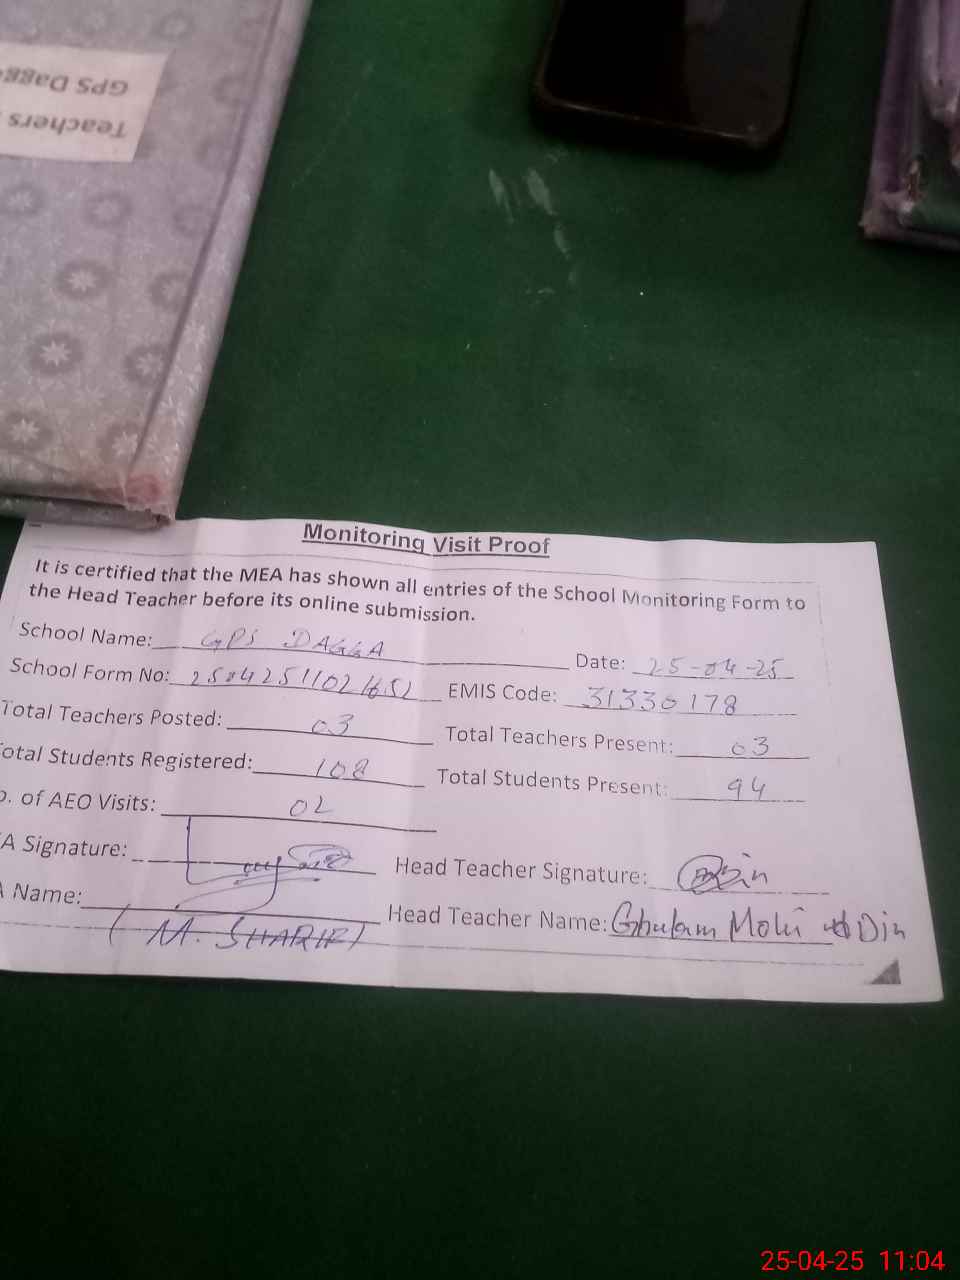 GPS Dagg
Teachers
Monitoring Visit Proof
It is certified that the MEA has shown all entries of the School Monitoring Form to
the Head Teacher before its online submission.
School Name: GPS DAGGA Date: 25-04-25
School Form No: 25042511021652 EMIS Code: 31330178
Total Teachers Posted: 03 Total Teachers Present: 03
otal Students Registered: 108 Total Students Present: 94
o. of AEO Visits: 02
A Signature: Head Teacher Signature:
Name: Head Teacher Name: Ghulam Mohi Din
(M. SHARIF)
25-04-25 11:04